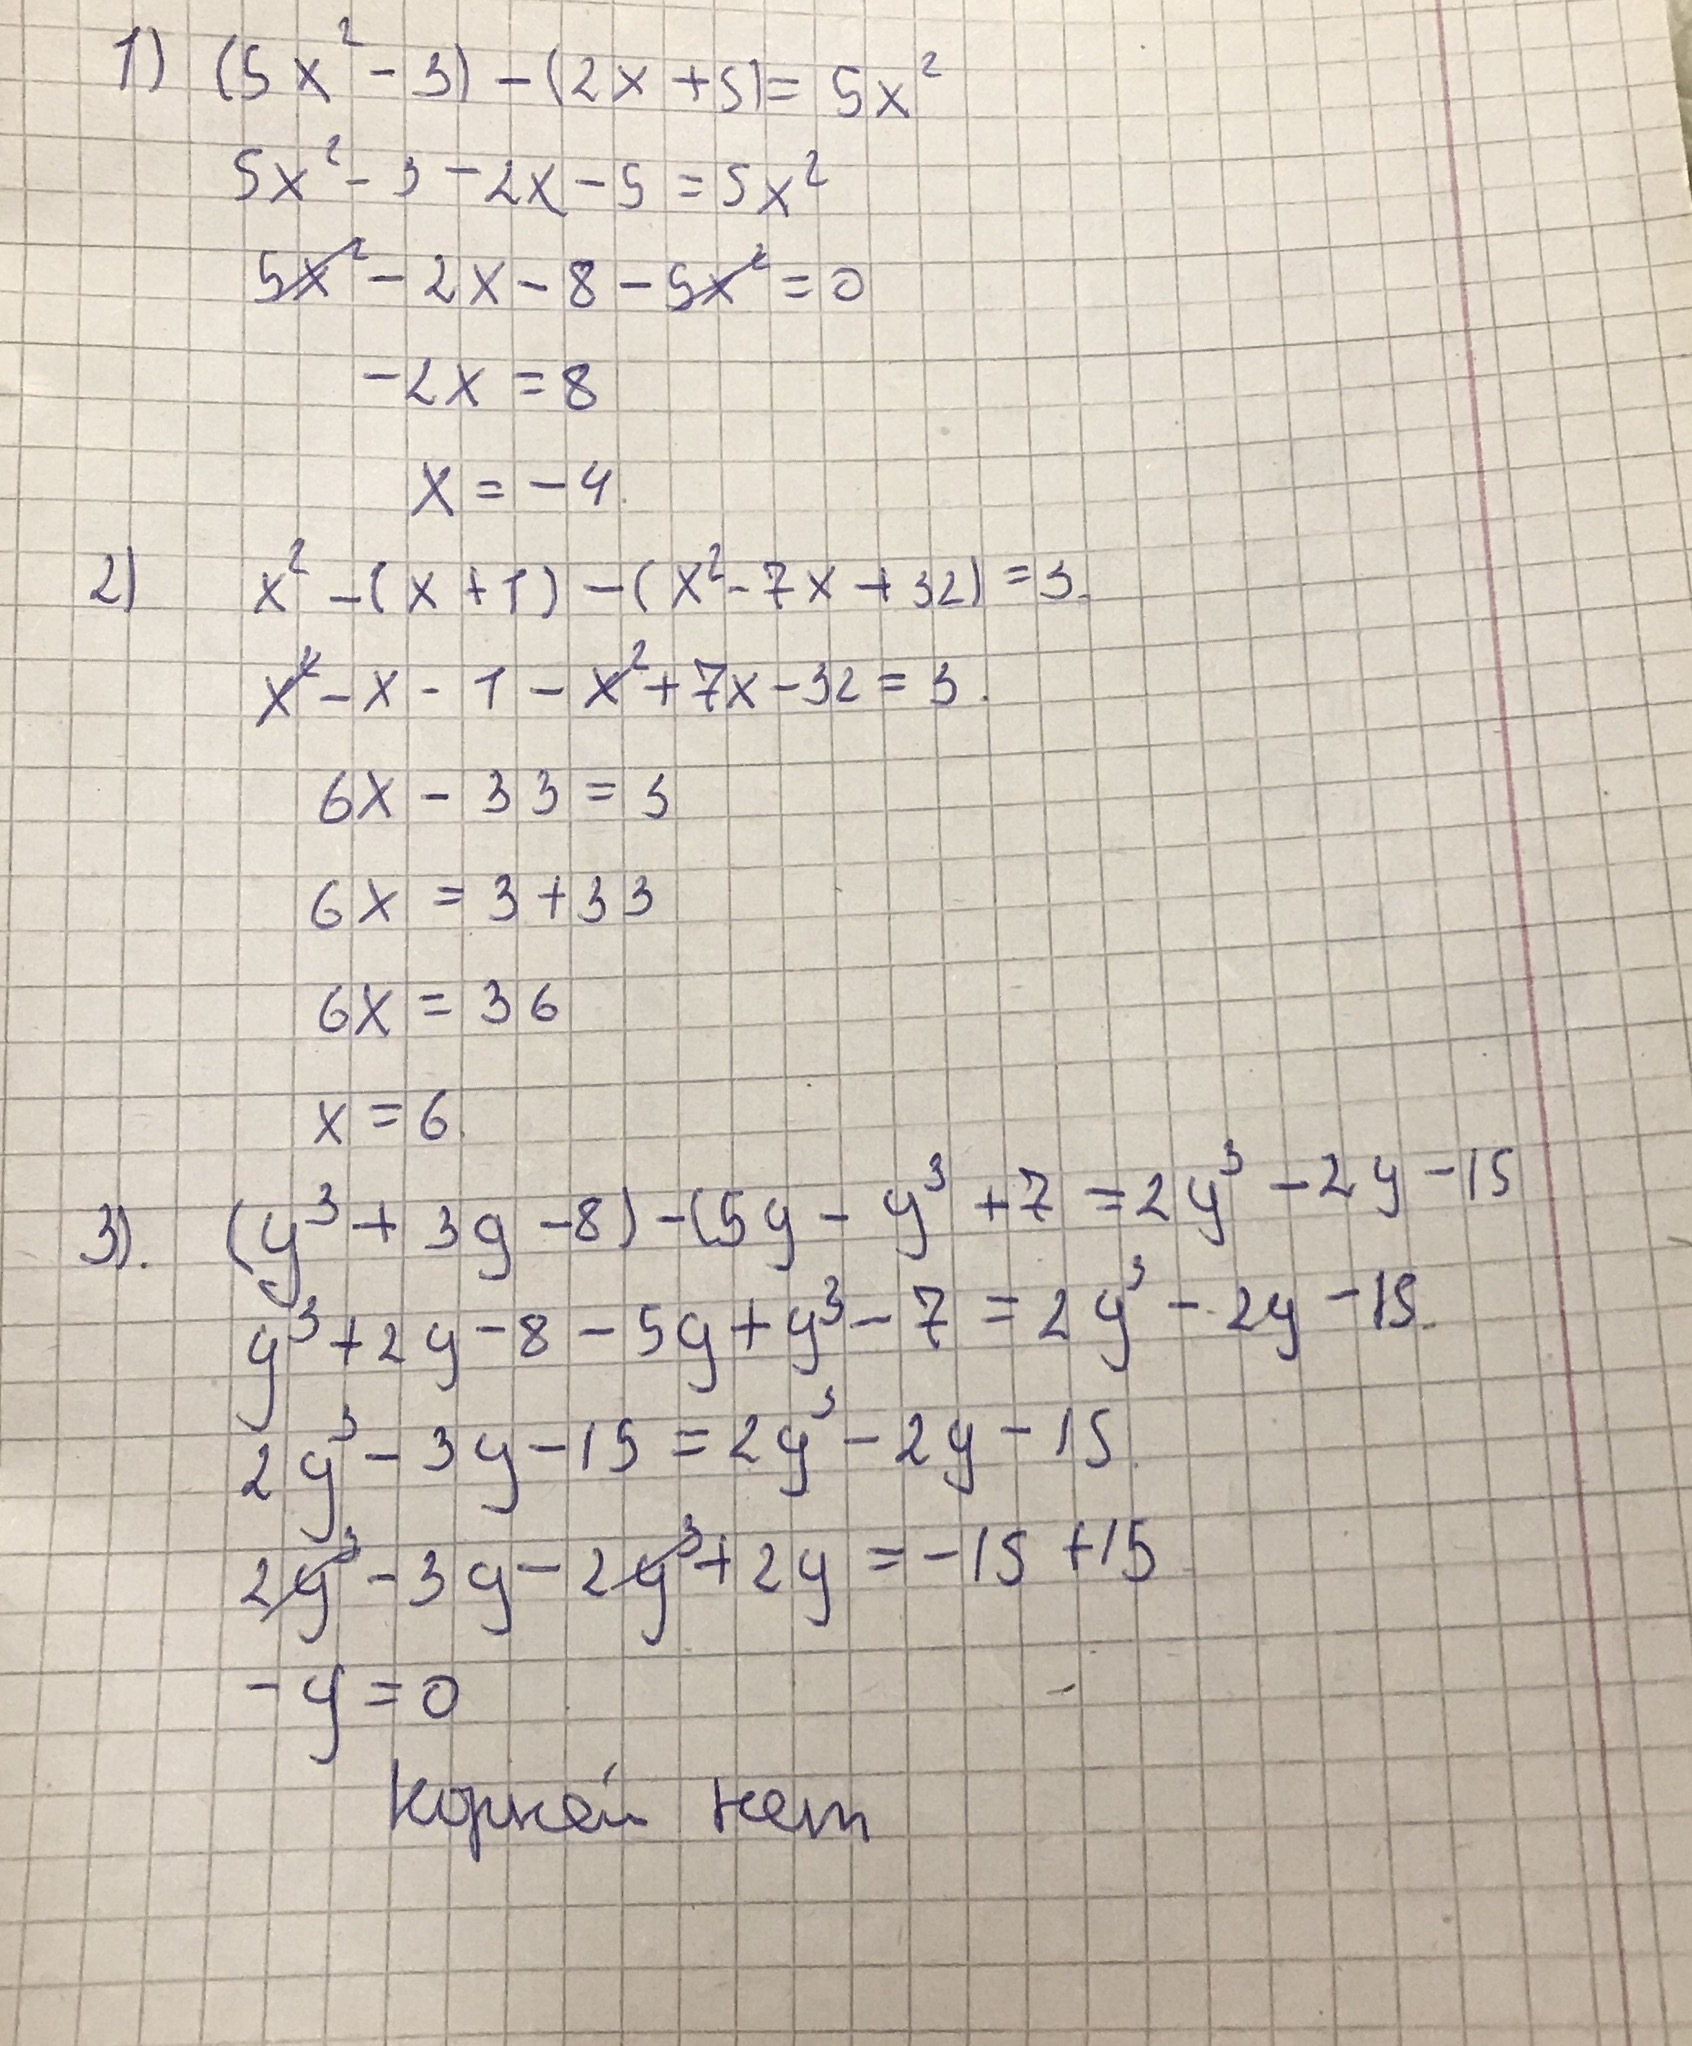 1) (5x² - 3) - (2x + 5) = 5x²
5x² - 3 - 2x - 5 = 5x²
5x² - 2x - 8 - 5x² = 0
-2x = 8
x = -4.
2) x² - (x + 1) - (x² - 7x + 32) = 3.
x² - x - 1 - x² + 7x - 32 = 3.
6x - 33 = 3
6x = 3 + 33
6x = 36
x = 6.
3). (y³ + 3y - 8) - (5y - y³ + 7 = 2y³ - 2y - 15
y³ + 2y - 8 - 5y + y³ - 7 = 2y³ - 2y - 15.
2y³ - 3y - 15 = 2y³ - 2y - 15.
2y³ - 3y - 2y³ + 2y = -15 + 15
-y = 0
Корней нет